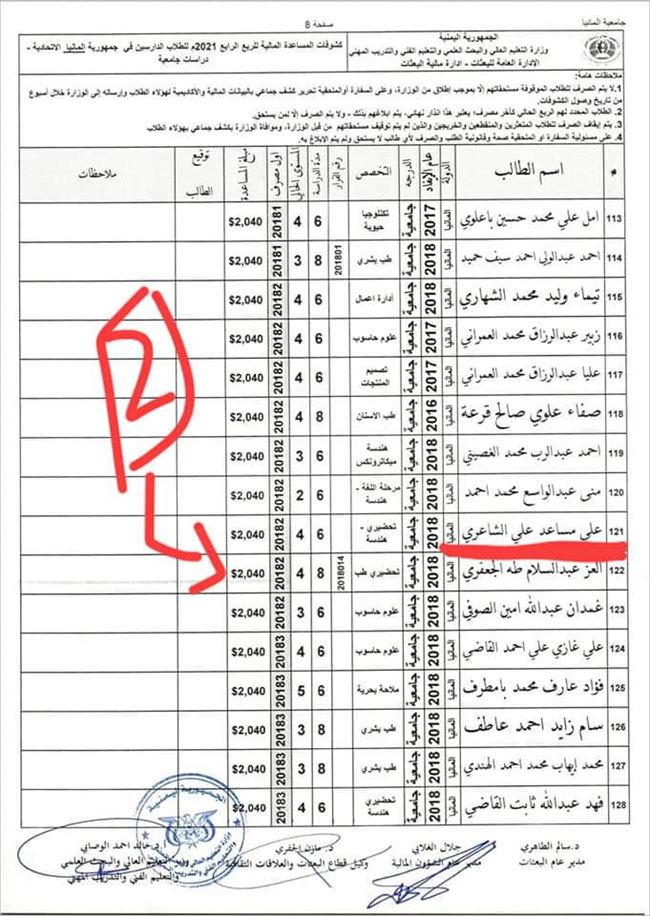 جامعية المانيا
صفحة 8
الجمهورية اليمنية
وزارة التعليم العالي والبحث العلمي والتعليم الفني والتدريب المهني
الإدارة العامة للبعثات - ادارة مالية البعثات
كشوفات المساعدة المالية للربع الرابع 2021م للطلاب الدارسين في جمهورية المانيا الاتحادية - دراسات جامعية
ملاحظات هامة:
1. لا يتم الصرف للطلاب الموقوفة مستحقاتهم إلا بموجب إطلاق من الوزارة، وعلى السفارة أو الملحقية تحرير كشف جماعي بالبيانات المالية والأكاديمية لهؤلاء الطلاب وإرساله إلى الوزارة خلال أسبوع
من تاريخ وصول الكشوفات.
2. الطلاب المحدد لهم الربع الحالي كآخر مصرف؛ يعتبر هذا انذار نهائي، يتم ابلاغهم بذلك - ولا يتم الصرف إلا لمن يستحق.
3. يتم إيقاف الصرف للطلاب المتعثرين والمنقطعين والخريجين والذين لم يتم توقيف مستحقاتهم من قبل الوزارة، وموافاة الوزارة بكشف جماعي بهؤلاء الطلاب
4. على مسئولية السفارة او الملحقية صحة وقانونية الطلب والصرف لأي طالب لا يستحق ولم يتم الإبلاغ به.
# اسم الطالب الدولة عام الإيفاد الدرجه التخصص رقم القرار مدة الدراسة المستوى الحالي اول مصرف مبلغ المساعدة توقيع الطالب ملاحظات
113 امل علي محمد حسين باعلوي المانيا 2017 جامعية تكنلوجيا حيوية 6 4 20181 $2,040
114 احمد عبدالولي احمد سيف حميد المانيا 2018 جامعية طب بشري 201801 8 3 20181 $2,040
115 تيماء وليد محمد الشهاري المانيا 2018 جامعية أدارة اعمال 6 4 20182 $2,040
116 زبير عبدالرزاق محمد العمراني المانيا 2017 جامعية علوم حاسوب 6 4 20182 $2,040
117 عليا عبدالرزاق محمد العمراني المانيا 2017 جامعية تصميم المنتجات 6 4 20182 $2,040
118 صفاء علوي صالح قرعة المانيا 2016 جامعية طب الاسنان 8 4 20182 $2,040
119 احمد عبدالرب محمد الغصيني المانيا 2018 جامعية هندسة ميكاترونكس 6 3 20182 $2,040
120 منى عبدالواسع محمد احمد المانيا 2018 جامعية مرحلة اللغة - هندسة 6 2 20182 $2,040
121 علي مساعد علي الشاعري المانيا 2018 جامعية تحضيري - هندسة 6 4 20182 $2,040
122 العز عبدالسلام طه الجعفري المانيا 2018 جامعية تحضيري طب 2018014 8 4 20182 $2,040
123 غمدان عبدالله امين الصوفي المانيا 2018 جامعية علوم حاسوب 6 3 20182 $2,040
124 علي غازي علي احمد القاضي المانيا 2018 جامعية علوم حاسوب 6 4 20183 $2,040
125 فؤاد عارف محمد بامطرف المانيا 2018 جامعية ملاحة بحرية 6 5 20183 $2,040
126 سام زايد احمد عاطف المانيا 2018 جامعية طب بشري 8 3 20183 $2,040
127 محمد إيهاب محمد احمد الهندي المانيا 2018 جامعية طب بشري 8 3 20183 $2,040
128 فهد عبدالله ثابت القاضي المانيا 2018 جامعية تحضيري هندسة 6 4 20183 $2,040
2
د. سالم الطاهري
مدير عام البعثات
جلال الغلابي
مدير عام الشؤون المالية
د. مازن الجفري
وكيل قطاع البعثات والعلاقات الثقافية
أ.د. خالد احمد الوصابي
وزير التعليم العالي والبحث العلمي
والتعليم الفني والتدريب المهني
الجمهورية اليمنية